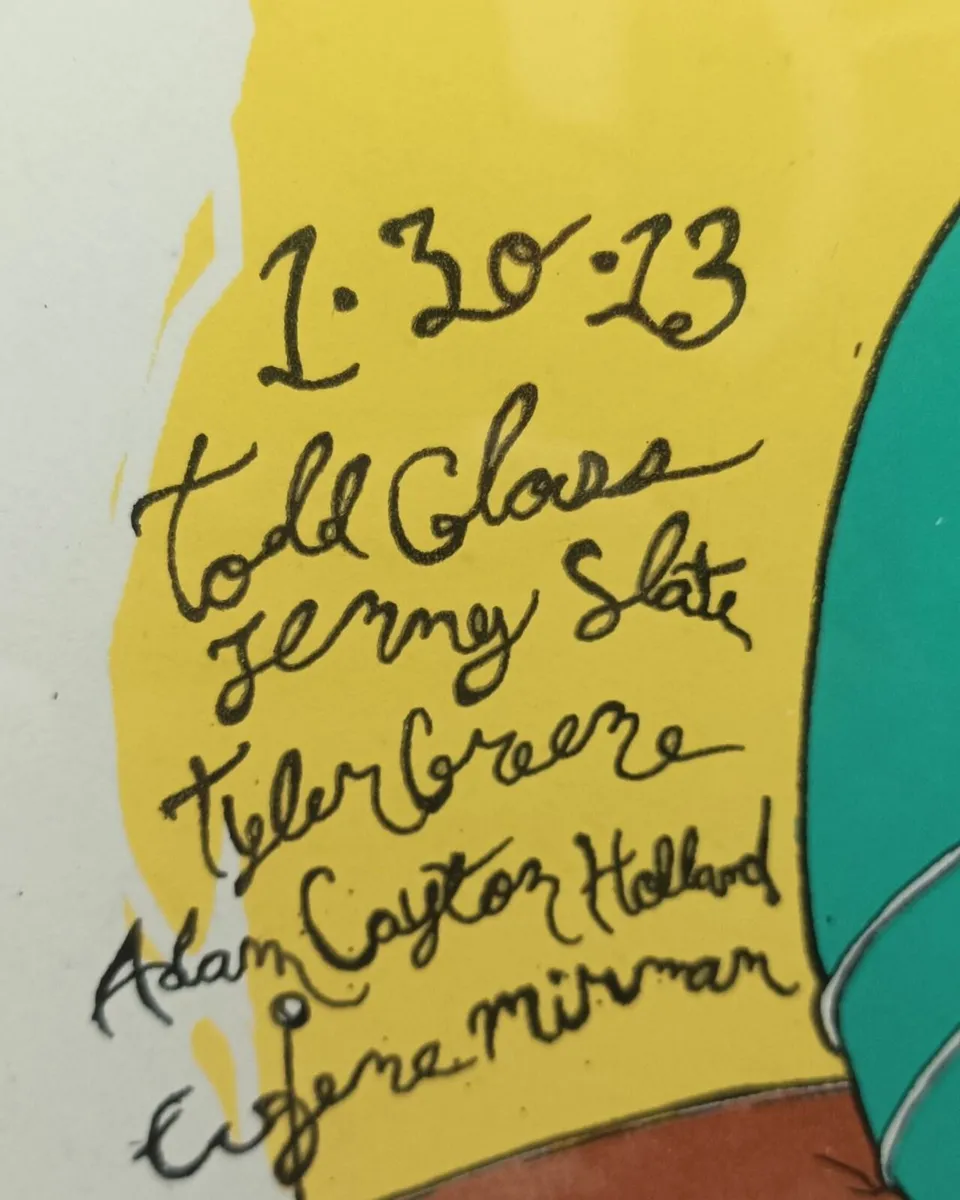 1·30·13
Todd Glass
Jenny Slate
Tyler Greene
Adam Cayton Holland
Eugene Mirman